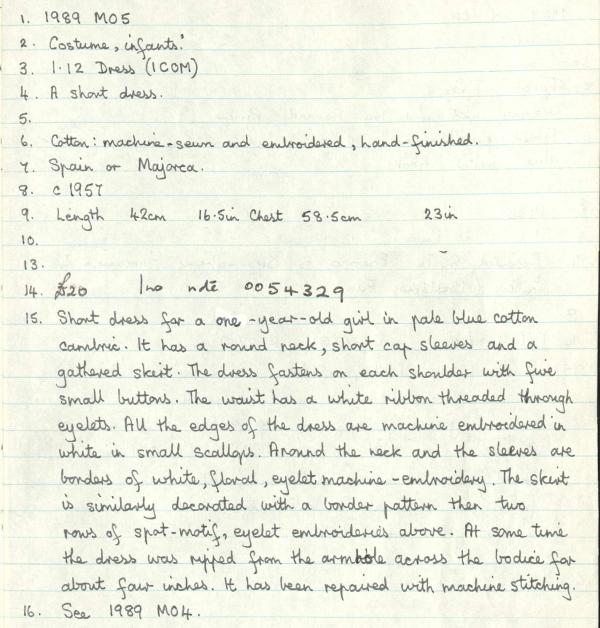 1. 1989 M05
2. Costume, infants'
3. 1.12 Dress (ICOM)
4. A short dress.
5.
6. Cotton: machine-sewn and embroidered, hand-finished.
7. Spain or Majorca.
8. c 1957
9. Length 42cm 16.5in Chest 58.5cm 23in
10.
13.
14. £20 note 0054329
15. Short dress for a one-year-old girl in pale blue cotton
cambric. It has a round neck, short cap sleeves and a
gathered skirt. The dress fastens on each shoulder with five
small buttons. The waist has a white ribbon threaded through
eyelets. All the edges of the dress are machine embroidered in
white in small scallops. Around the neck and the sleeves are
borders of white, floral, eyelet machine-embroidery. The skirt
is similarly decorated with a border pattern then two
rows of spot-motif, eyelet embroideries above. At some time
the dress was ripped from the armhole across the bodice for
about four inches. It has been repaired with machine stitching.
16. See 1989 M04.